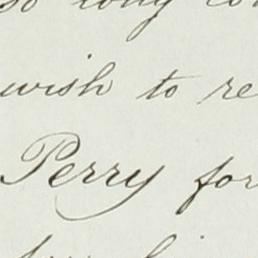 so long
wish to re
Perry for